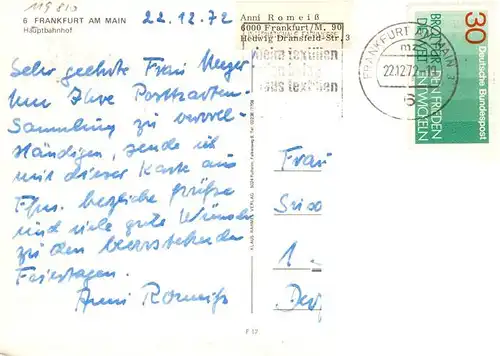 119 810
6 FRANKFURT AM MAIN
Hauptbahnhof
22.12.72
Anni Romeiß
6000 Frankfurt/M. 90
Hedwig Dransfeld-Str. 3
Sehr geehrte Frau Meyer!
Um Ihre Postkarten-
Sammlung zu vervoll-
ständigen, sende ich
mit dieser Karte aus
Ffm. herzliche Grüße
und viele gute Wünsche
zu den bevorstehenden
Feiertagen.
Anni Romeiß
textilien
textilien
FRANKFURT AM MAIN
mz
22.12.72
6
30
Deutsche Bundespost
BROT FÜR DIE WELT
DEN FRIEDEN ENTWICKELN
Frau
1
KLAUS VERLAG
F 17